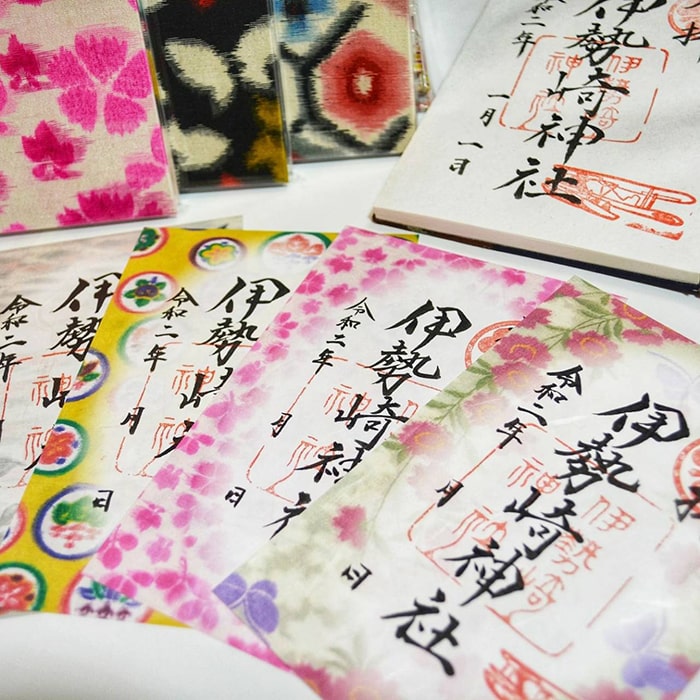 伊勢崎神社
令和二年
一月
一日
伊勢崎神社
伊勢崎神社
令和二年
伊勢
令和二年
月
日
伊勢崎神
令和二年
月
日
伊勢崎神社
令和二年
月
日
伊勢崎
神社